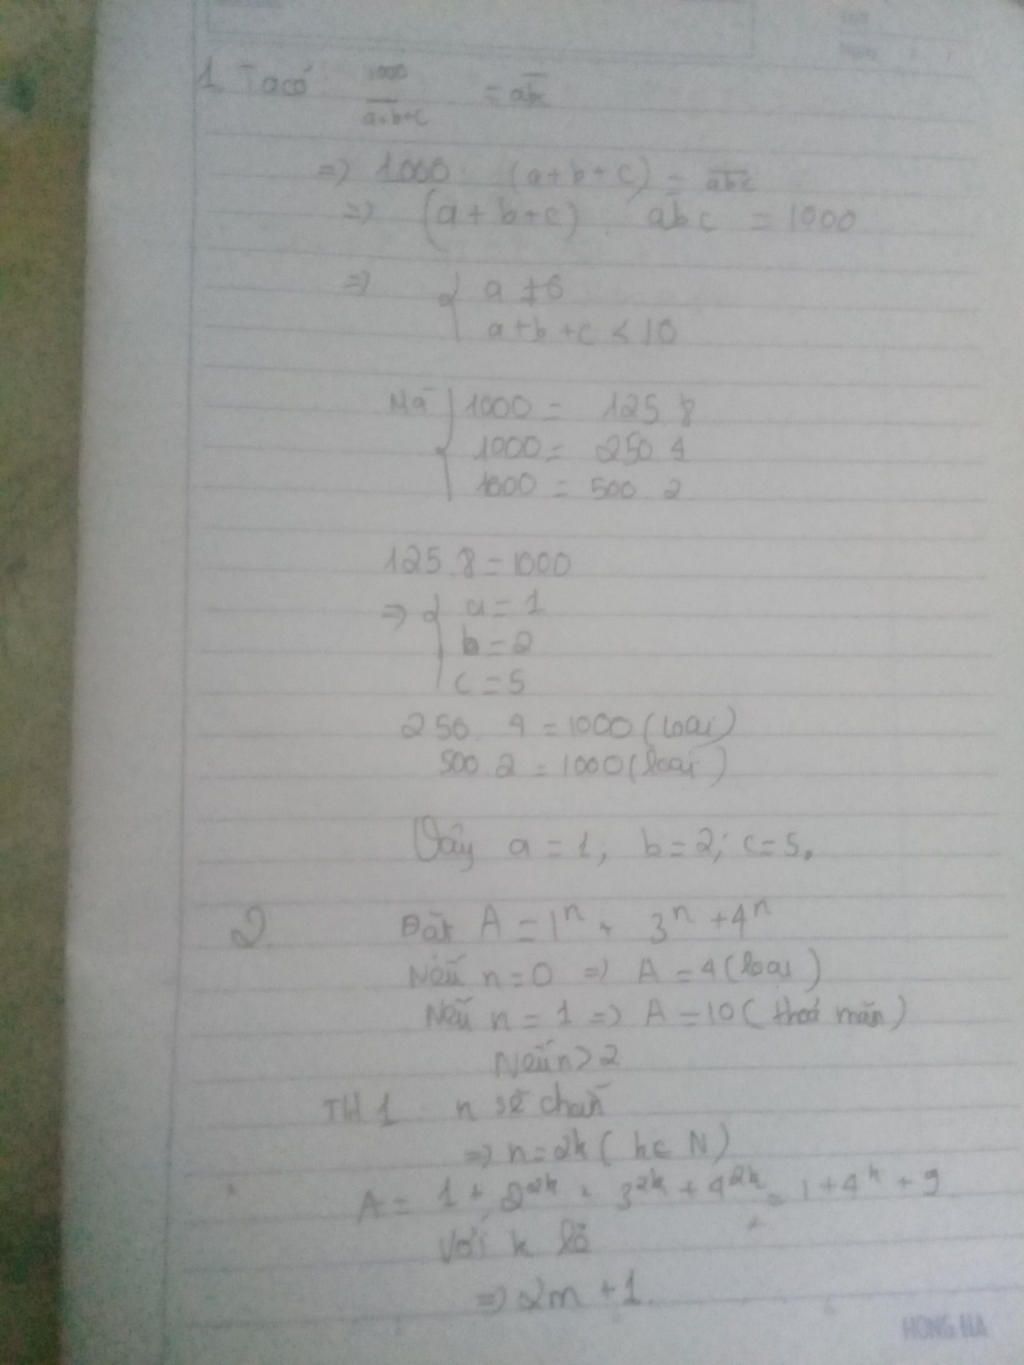 1. Ta có 1000 / a+b+c = abc
=> 1000 : (a+b+c) = abc
=> (a+b+c) . abc = 1000
=> { a ≠ 0
a+b+c < 10
Mà { 1000 = 125.8
1000 = 250.4
1000 = 500.2
125.8 = 1000
=> { a = 1
b = 2
c = 5
250.4 = 1000 (loại)
500.2 = 1000 (loại)
Vậy a = 1; b = 2; c = 5.
2. Đặt A = 1ⁿ + 3ⁿ + 4ⁿ
Nếu n = 0 => A = 4 (loại)
Nếu n = 1 => A = 10 (thoả mãn)
Nếu n > 2
TH1 n sẽ chẵn
=> n = 2k (k ∈ N)
A = 1 + 2²ᵏ + 3²ᵏ + 4²ᵏ = 1 + 4ᵏ + 9
Với k lẻ
=> 2m + 1.
HONG HA